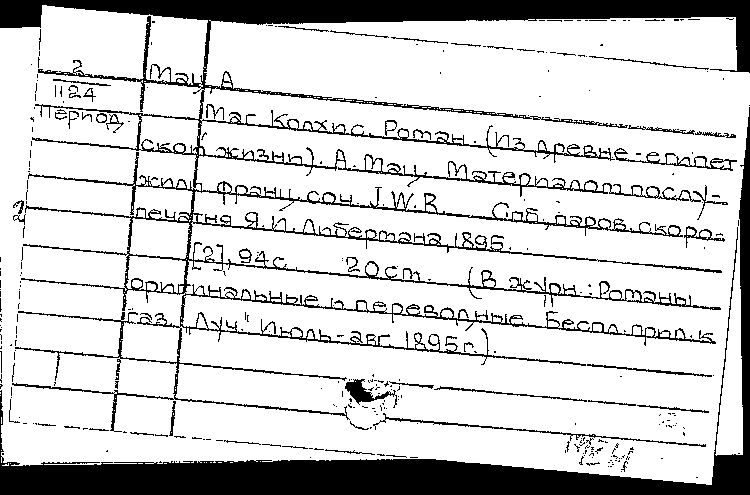 2
1124
Период.
Мац, А
Маг Колхис. Роман. (Из древне-египет-
ской жизни). А. Мац. Материалом послу-
жили франц. соч. J.W.R. Спб, паров. скоро-
печатня Я.И. Либермана, 1895.
[2], 94 с. 20 ст. (В журн.: Романы
оригинальные и переводные. Беспл. прил. к
газ. "Луч." Июль-авг. 1895 г.).
2